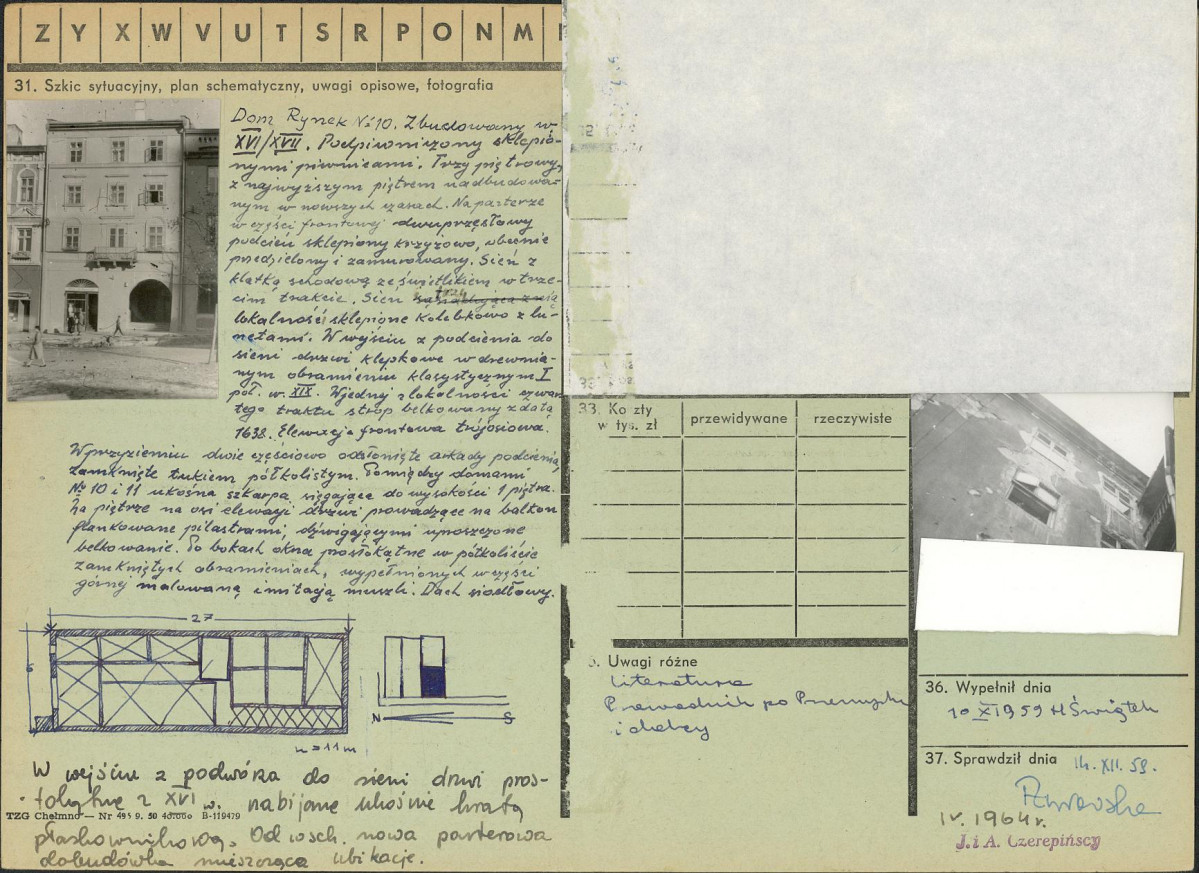 Z Y X W V U T S R P O N M
31. Szkic sytuacyjny, plan schematyczny, uwagi opisowe, fotografia
Dom Rynek Nr 10. Zbudowany w
XVI/XVII. Podpiwniczony sklepio-
nymi piwnicami. Trzy piętrowy,
z najwyższym piętrem nadbudowa-
nym w nowszych czasach. Na parterze
w części frontowej dwuprzęsłowy
podcień sklepiony krzyżowo, obecnie
przedzielony i zamurowany. Sień z
klatką schodową ze świetlikiem w trze-
cim trakcie. Sień
lokalności sklepione kolebkowo z lu-
netami. W wejściu z podcienia do
sieni drzwi klepkowe w drewnia-
nym obramieniu klasystycznym I
poł. w. XIX. W jednej z lokalności czwar
tego traktu strop belkowany z datą
1638. Elewacja frontowa trójosiowa.
W przyziemiu dwie częściowo odsłonięte arkady podcienia,
zamknięte łukiem półkolistym. Pomiędzy domami
Nr 10 i 11 ukośna szkarpa sięgająca do wysokości 1 piętra.
Na piętrze na osi elewacji drzwi prowadzące na balkon
flankowane pilastrami, dźwigającymi uproszczone
belkowanie. Po bokach okna prostokątne w półkoliście
zamkniętych obramieniach, wypełnionych w części
górnej malowaną imitacją muszli. Dach siodłowy.
27
6
N S
h = 11 m
W wejściu z podwórza do sieni drzwi pros-
tokątne z XVI w. nabijane ukośnie kratą
TZG Chełmno — Nr 495 9. 50 40.000 B-119479
płaskownikową. Od wsch. nowa parterowa
dobudówka mieszcząca ubikacje.
33. Koszty
w tys. zł
przewidywane
rzeczywiste
Uwagi różne
Literatura
Przewodnik po Przemyślu
i okolicy
36. Wypełnił dnia
10 XI 1959 H Świątek
37. Sprawdził dnia 14. XII. 59.
IV. 1964 r.
J. i A. Czerepińscy